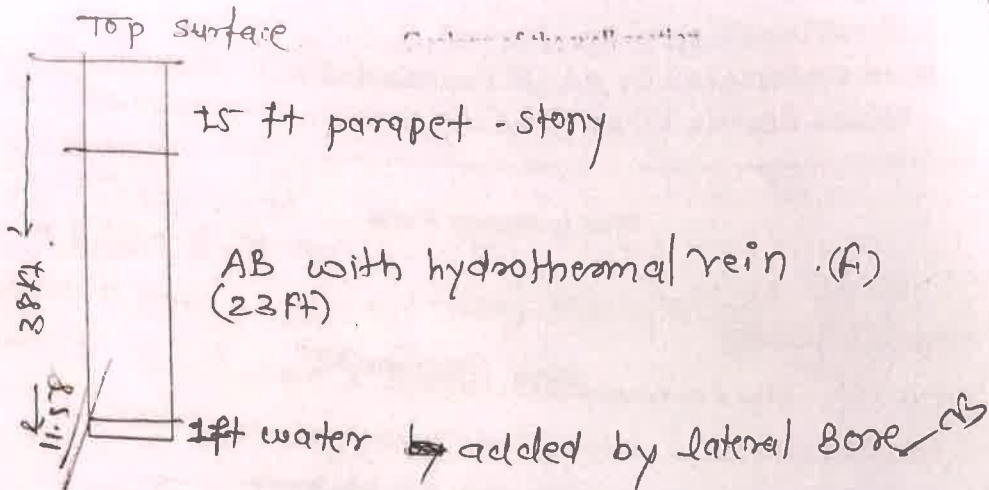 Top surface
15 ft parapet - stony
38ft.
AB with hydrothermal vein. (fi)
(23ft)
11.58
1ft water added by lateral Bore